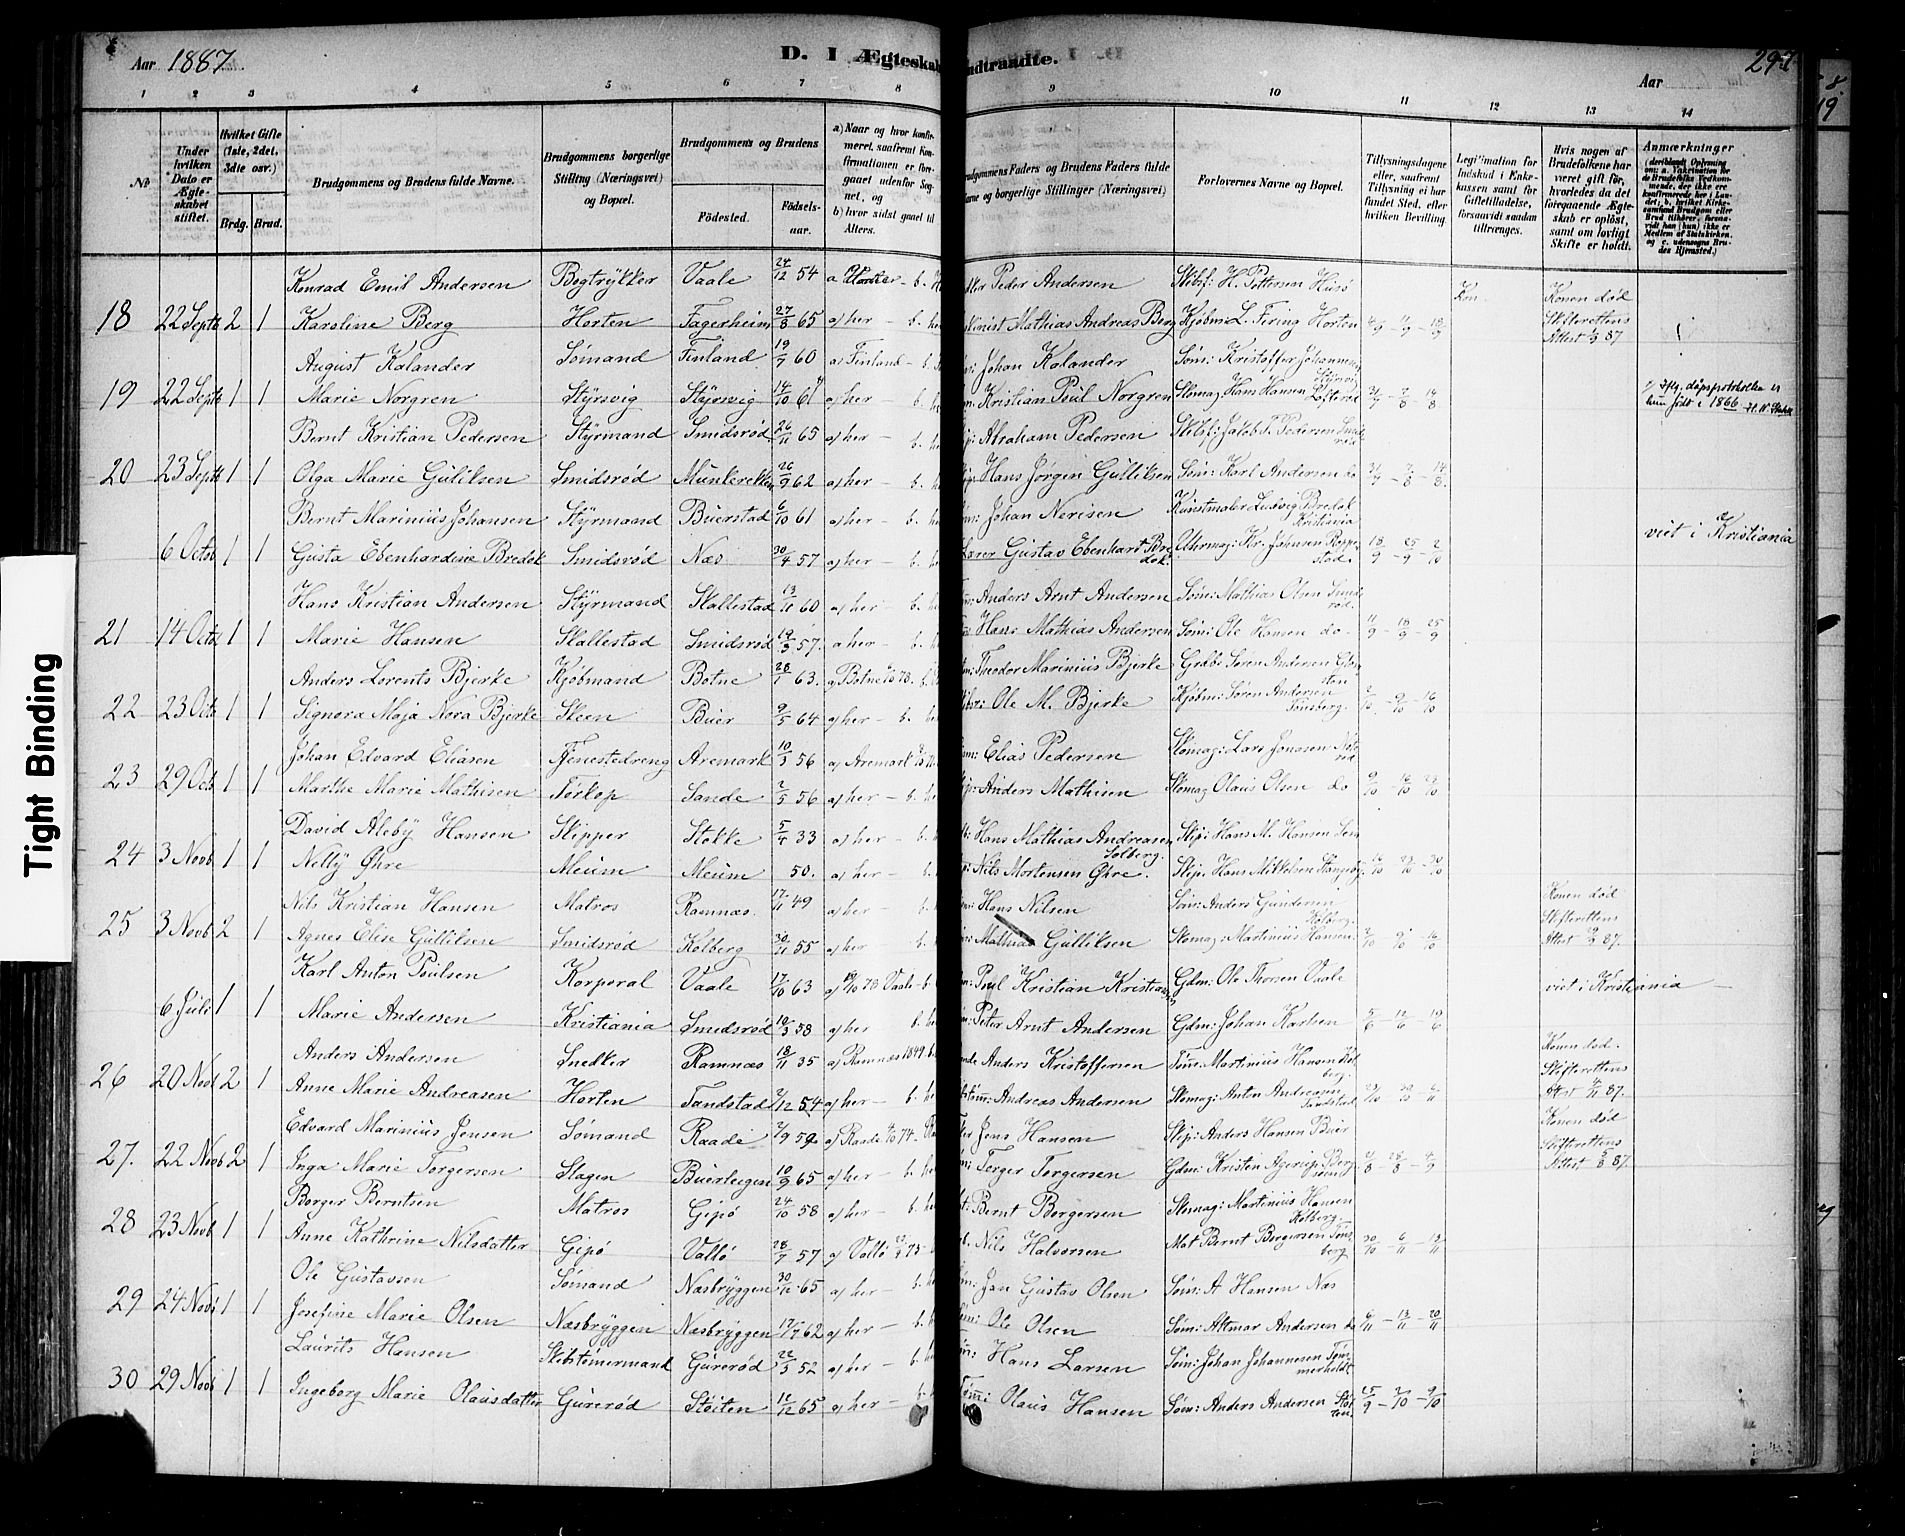 Aar 1887 D. I Ægteskab Indtraadte. Aar 297
1 2 3 4 5 6 7 8 9 10 11 12 13 14
№ Under hvilken Dato er Ægteskabet stiftet. Hvilket Gifte (1ste, 2det, 3die osv.) Brdg. Brud. Brudgommens og Brudens fulde Navne. Brudgommens borgerlige Stilling (Næringsvei) og Bopæl. Brudgommens og Brudens Fødested. Fødselsaar. a) Naar og hvor konfirmeret, saafremt Konfirmationen er foregaaet udenfor Sognet, og b) hvor sidst gaaet til Alters.
Brudgommens Faders og Brudens Faders fulde Navne og borgerlige Stillinger (Næringsvei) Forlovernes Navne og Bopæl. Tillysningsdagene eller, saafremt Tillysning ei har fundet Sted, efter hvilken Bevilling Legitimation for Indskud i Enkekassen samt for Giftetilladelse, forsaavidt saadan tiltrænges. Hvis nogen af Brudefolkene har været gift før, hvorledes da det foregaaende Ægteskab er opløst, samt om lovligt Skifte er holdt. Anmærkninger
Konrad Emil Andersen Bogtrykker Vaale 24/12 54 a Peder Andersen Skibsf: H. Pettersen Husø Konen død
18 22 Septb 2 1 Karoline Berg Horten Fagerheim 27/8 65 a/ her b. Mathias Andreas Berg Kjøbm: L. Firing Horten 4/9 - 11/9 - 18/9 Skifterettens Attest 87
August Kolander Sømand Finland 19/7 60 a/ Finland - b. Johan Kolander Søm: Kristoffer Johannesen
19 22 Septb 1 1 Marie Norgren Styrsvig Styrsvig 14/10 61 a/ her - b. Kristian Poul Norgren Skomag: Hans Hansen 31/7 - 7/8 - 14/8 iflg. dåpsprotokollen er hun født i 1866
Bernt Kristian Pedersen Styrmand Smidsrød 26/11 65 a/ her - b. Abraham Pedersen Skibsf: Jakob P. Pedersen
20 23 Septb 1 1 Olga Marie Gulliksen Smidsrød Munkerekken 26/9 62 a/ her - b. Hans Jørgen Gulliksen Søm: Karl Andersen do 31/7 - 7/8 - 14/8
Bernt Marinius Johansen Styrmand Buerstad 6/10 61 a/ her - b. Johan Nerisen Kunstmaler Ludvig Bredok Kristiania
6 Octob 1 1 Gusta Ebenhardine Bredok Smidsrød Næs 30/4 57 a/ her - b. Lærer Gustav Ebenhart Bredok. Uhrmag: Kr. Johansen 18/9 - 25/9 - 2/10 viet i Kristiania
Hans Kristian Andersen Styrmand Skallestad 13/11 60 a/ her - b. Anders Arnt Andersen Søm: Mathias Olsen
21 14 Octb 1 1 Marie Hansen Skallestad Smidsrød 19/3 57. a her - b. Hans Mathias Andersen Søm: Ole Hansen do - 11/9 - 18/9 - 25/9
Anders Lorents Bjerke Kjøbmand Botne 28/1 63. a/ Botne 78. b. Theodor Marinius Bjerke Søren Andersen
22 23 Octb 1 1 Signora Maja Nora Bjerke Skeen Buer 9/5 64 a/ her - b. Ole M. Bjerke Kjøbm: Søren Andersen Tønsberg. 2/10 - 9/10 - 16/10
Johan Edvard Eliasen Tjenestedreng Aremark 10/3 56 a/ Aremark Elias Pedersen Skomag: Lars Jonasen
23 29 Octb 1 1 Marthe Marie Mathisen Torkop Sande 2/5 56 a/ her - b. Anders Mathisen Skomag Olaus Olsen do 9/10 - 16/10 - 23/10
David Aleby Hansen Skipper Stokke 5/4 33 a/ her - b. Hans Mathias Andreasen Solberg. Skip: Hans M. Hansen
24 3 Novb 1 1 Nelly Øhre Meum Meum 50. a/ her - b. Nils Mortensen Øhre. Skip. Hans Mikkelsen 16/10 - 23/10 - 30/10
Nils Kristian Hansen Matros Ramnæs 17/11 49 a/ her - b. Hans Nilsen Søm: Anders Gundersen Kolberg. Konen død
25 3 Novb 2 1 Agnes Elise Gulliksen Smidsrød Kolberg 30/11 55 a/ her b. Mathias Gulliksen Skomag: Martinius Hansen 2/10 - 9/10 - 16/10 Skifterettens Attest 87.
Karl Anton Poulsen Korporal Vaale 17/10 63 a/ 78 Vaale - b Poul Kristian Kristiansen Gdm: Ole Thorsen Vaale viet i Kristiania
6 Juli 1 1 Marie Andersen Kristiania Smidsrød 10/3 58 a/ her b. Peter Arnt Andersen Gdm: Johan Karlsen 5/6 - 12/6 - 19/6
Anders Andersen Snedker Ramnæs 18/11 35 a/ Ramnæs 1849. b. Anders Kristoffersen Tøm: Martinius Hansen Kolberg. Konen død.
26 20 Novb 2 1 Anne Marie Andreasen Horten Tandstad 2/12 54 a/ her - b. Andreas Andersen Skomag: Anton Andreasen Tandstad 23/10 - 30/10 - 6/11 Skifterettens Attest 87.
Edvard Marinius Jensen Sømand Raade 2/9 59 a/ Raade 74 - Jens Hansen Skip: Anders Hansen Buer Konen død
27. 22 Novb 2 1 Inga Marie Torgersen Slagen Buerlegen 10/9 65 a/ her b. Torger Torgersen Gdm: Kristen 21/8 - 28/8 - 4/9 Skifterettens Attest 87.
Borger Berntsen Matros Gipø 24/10 58 a/ her - b. Bernt Borgersen Skomag: Martinius Hansen Kolberg.
28 23 Novb 1 1 Anne Kathrine Nilsdatter Gipø Vallø 28/7 57 a/ Vallø 73 - Nils Halvorsen Mat Bernt Borgersen Tønsberg 30/10 - 6/11 - 13/11
Ole Gustavsen Sømand Næsbryggen 30/12 65 a/ her - b. Jan Gustav Olsen Søm: A Hansen Næs
29 24 Novb 1 1 Josefine Marie Olsen Næsbryggen Næsbryggen 17/7 62 a/ her - b. Ole Olsen Søm: Altmar Andersen do 6/11 - 13/11 - 20/11
Laurits Hansen Skibstømermand Gurerød 22/3 52 a/ her - b. Hans Larsen Søm: Johan Johannesen Tømmerholdt
30 29 Novb 1 1 Ingeborg Marie Olausdatter Gurerød Støiten 12/12 65 a/ her - b. Tøm: Olaus Hansen Søm: Anders Andersen Støiten. 25/9 - 2/10 - 9/10
Tight Binding